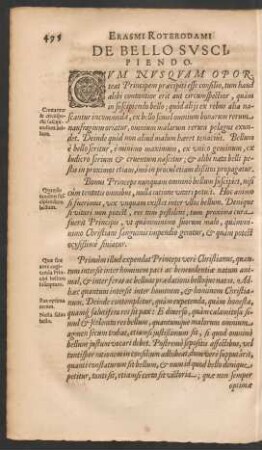 498
ERASMI ROTERODAMI
DE BELLO SVSCI-
PIENDO.
CVM NVSQVAM OPOR-
teat Principem præcipiti esse consilio, tum haud
alibi contantior erit aut circumspectior, quàm
in suscipiendo bello: quòd alijs ex rebus alia na-
scantur incommoda, ex bello simul omnium bonarum rerum
naufragium oriatur, omnium malarum rerum pelagus exun-
det. Deinde quòd non aliud malum hæret tenacius. Bellum
è bello seritur, è minimo maximum, ex vnico geminum, ex
ludicro serium & cruentum nascitur, & alibi nata belli pe-
stis in proximos etiam, imò in procul etiam dissitos propagatur.
Bonus Princeps nunquam omnino bellum suscipiet, nisi
cùm tentatis omnibus, nulla ratione vitari potuit. Hoc animo
si fuerimus, vix vnquam existet inter vllos bellum. Denique
si vitari non potest, res tam pestilens, tum proxima cura
fuerit Principis, vt quàm minimo suorum malo, quàm mi-
nimo Christiani sanguinis impendio geratur, & quàm potest
ocyssimè finiatur.
Primùm illud expendat Princeps verè Christianus, quan-
tum intersit inter hominem paci ac beneuolentiæ natum animal,
& inter feras ac belluas prædationi bellisque natas. Ad
hæc quantum intersit inter hominem & hominem Christia-
num. Deinde contempletur, quàm expetenda, quàm honesta,
quàmque salutifera res sit pax: E diuerso, quàm calamitosa si-
mul & scelerata res bellum, quantumque malorum omnium
agmen secum trahat, etiamsi iustissimum sit, si quod omnino
bellum iustum vocari debet. Postremò sepositis affectibus, vel
tantisper rationem in consilium adhibeat dum verè supputarit,
quanti constaturum sit bellum, & num id quod bello denique
petitur, tanti sit, etiamsi certa sit victoria, quæ non semper
optimæ